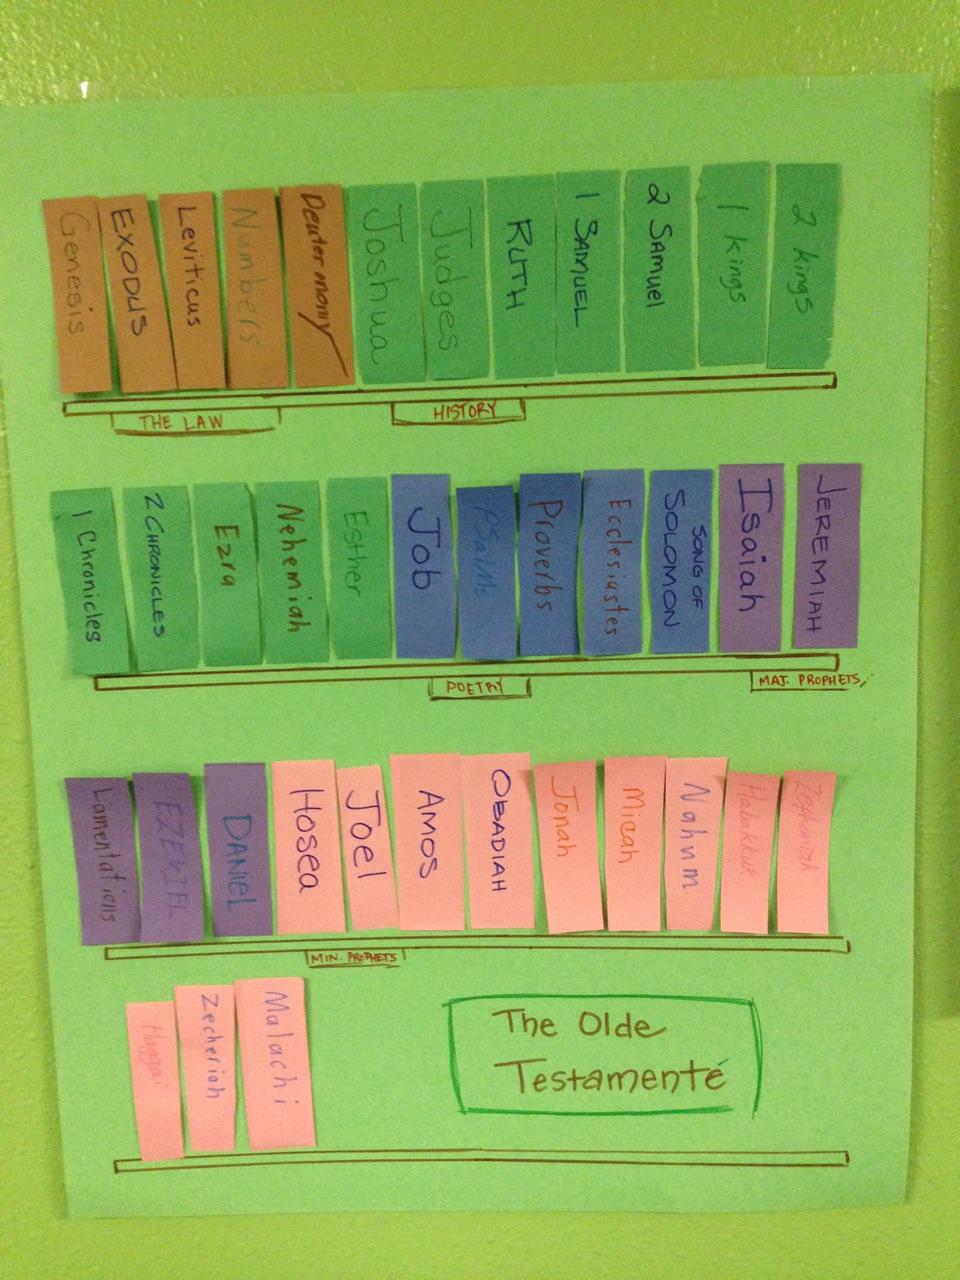 Genesis
EXODUS
Leviticus
Numbers
Deuteronomy
Joshua
Judges
RUTH
1 SAMUEL
2 SAMUEL
1 kings
2 kings
THE LAW
HISTORY
1 Chronicles
2 CHRONICLES
Ezra
Nehemiah
Esther
Job
PSalms
Proverbs
Ecclesiastes
SONG OF
SOLOMON
Isaiah
JEREMIAH
POETRY
MAJ. PROPHETS
Lamentations
EZEKIEL
DANIEL
Hosea
JOEL
AMOS
OBADIAH
Jonah
Micah
Nahum
Habakkuk
Zephaniah
MIN. PROPHETS
Haggai
Zecheriah
Malachi
The Olde
Testamenté